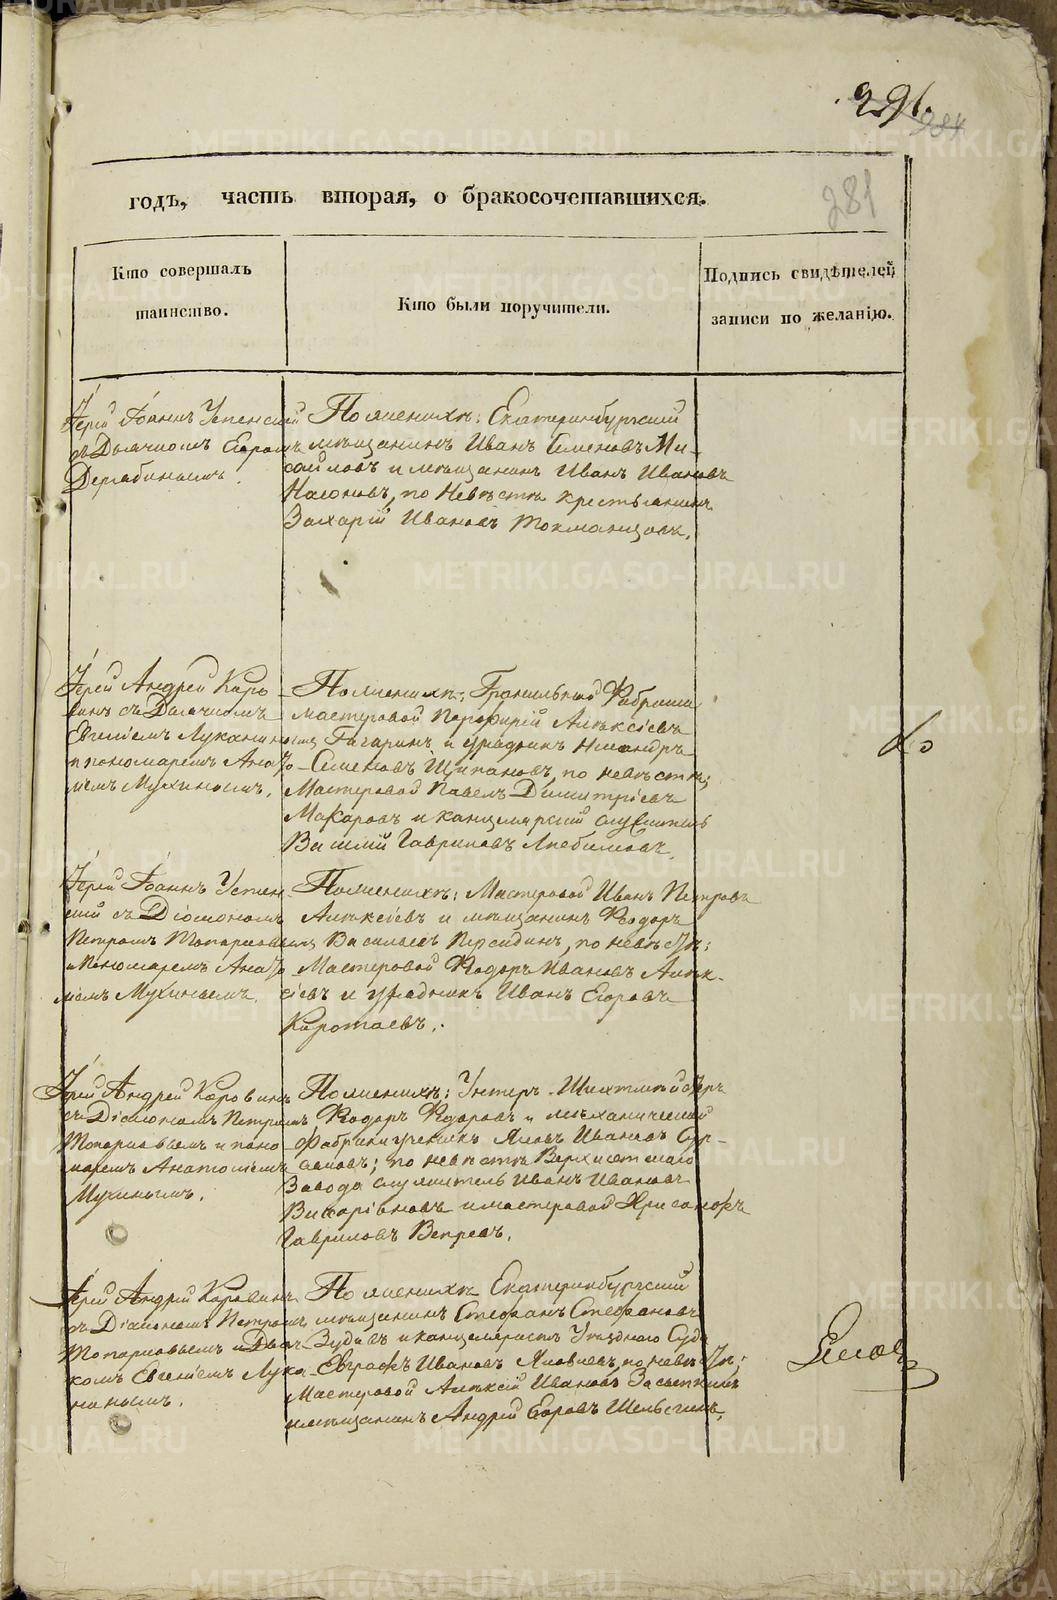 291.
281
годъ, часть вторая, о бракосочетавшихся.
Кто совершалъ
таинство.
Кто были поручители.
Подпись свидѣтелей
записи по желанію.
Іерей Іоаннъ Успенскій
съ Дьячкомъ Егоромъ
Дерябинымъ.
По женихѣ: Екатеринбургскій
мѣщанинъ Иванъ Семеновъ Ми-
хайловъ и мѣщанинъ Иванъ Ивановъ
по Невѣстѣ крестьянинъ
Захарій Ивановъ Токманцовъ.
Іерей Андрей Коро
винъ съ Дьячкомъ
Евгеніемъ Луканинымъ
и пономаремъ Анато
ліемъ Мухинымъ.
По женихѣ: Гранильной Фабрики
мастеровой Порфирій Алексіевъ
Гагаринъ и урядникъ
Семеновъ Щипановъ, по невѣстѣ;
Мастеровой Павелъ Димитріевъ
Макаровъ и канцелярскій служитель
Василій Гавриловъ Любимовъ.
Іерей Іоаннъ Успен
скій съ Діакономъ
Петромъ Топорковымъ
и Пономаремъ Анато
ліемъ Мухинымъ.
По женихѣ: Мастеровой Иванъ Петровъ
Алексіевъ и мѣщанинъ Ѳеодоръ
Васильевъ по невѣстѣ:
Мастеровой Ѳедоръ Ивановъ Алек-
сіевъ и урядникъ Иванъ Егоровъ
Коротаевъ.
Іерей Андрей Коровинъ
съ Діакономъ Петромъ
Топорковымъ и поно
маремъ Анатоліемъ
Мухинымъ.
По женихѣ: Унтеръ-Шихтмейстеръ
Ѳедоръ Ѳедоровъ и механической
фабрики ученикъ Яковъ Ивановъ
по невѣстѣ Верхисетскаго
Завода служитель Иванъ Ивановъ
и мастеровой Христофоръ
Гавриловъ Вепревъ.
Іерей Андрей Коровинъ
съ Діакономъ Петромъ
Топорковымъ и Дьяч
комъ Евгеніемъ Лука
нинымъ.
По женихѣ Екатеринбургскій
мѣщанинъ Стефанъ Стефановъ
Зубовъ и канцеляристъ Уѣзднаго Суда
Евграфъ Ивановъ Яковлевъ, по невѣстѣ;
Мастеровой Алексій Ивановъ
и мѣщанинъ Андрей Егоровъ
METRIKI.GASO-URAL.RU